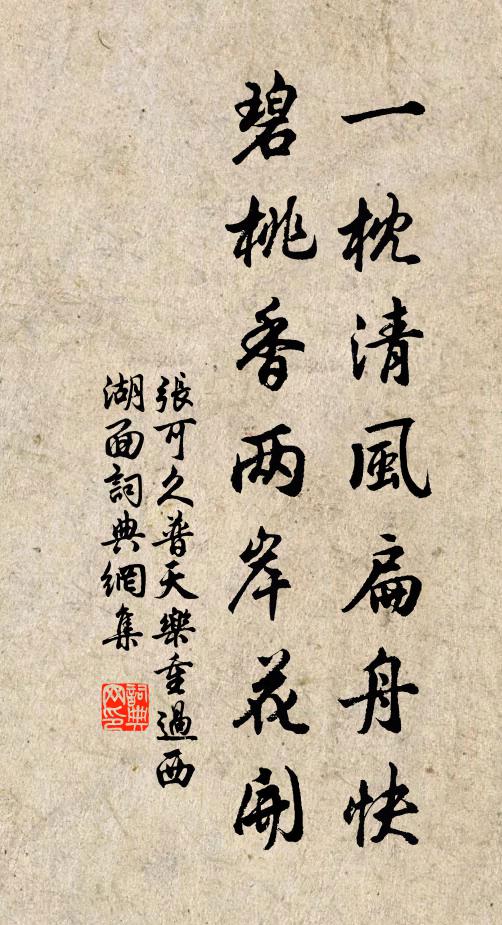 一枕清風扁舟快
碧桃香兩岸花開
張可久普天樂重過西
湖面詞典網集
詞典
网印